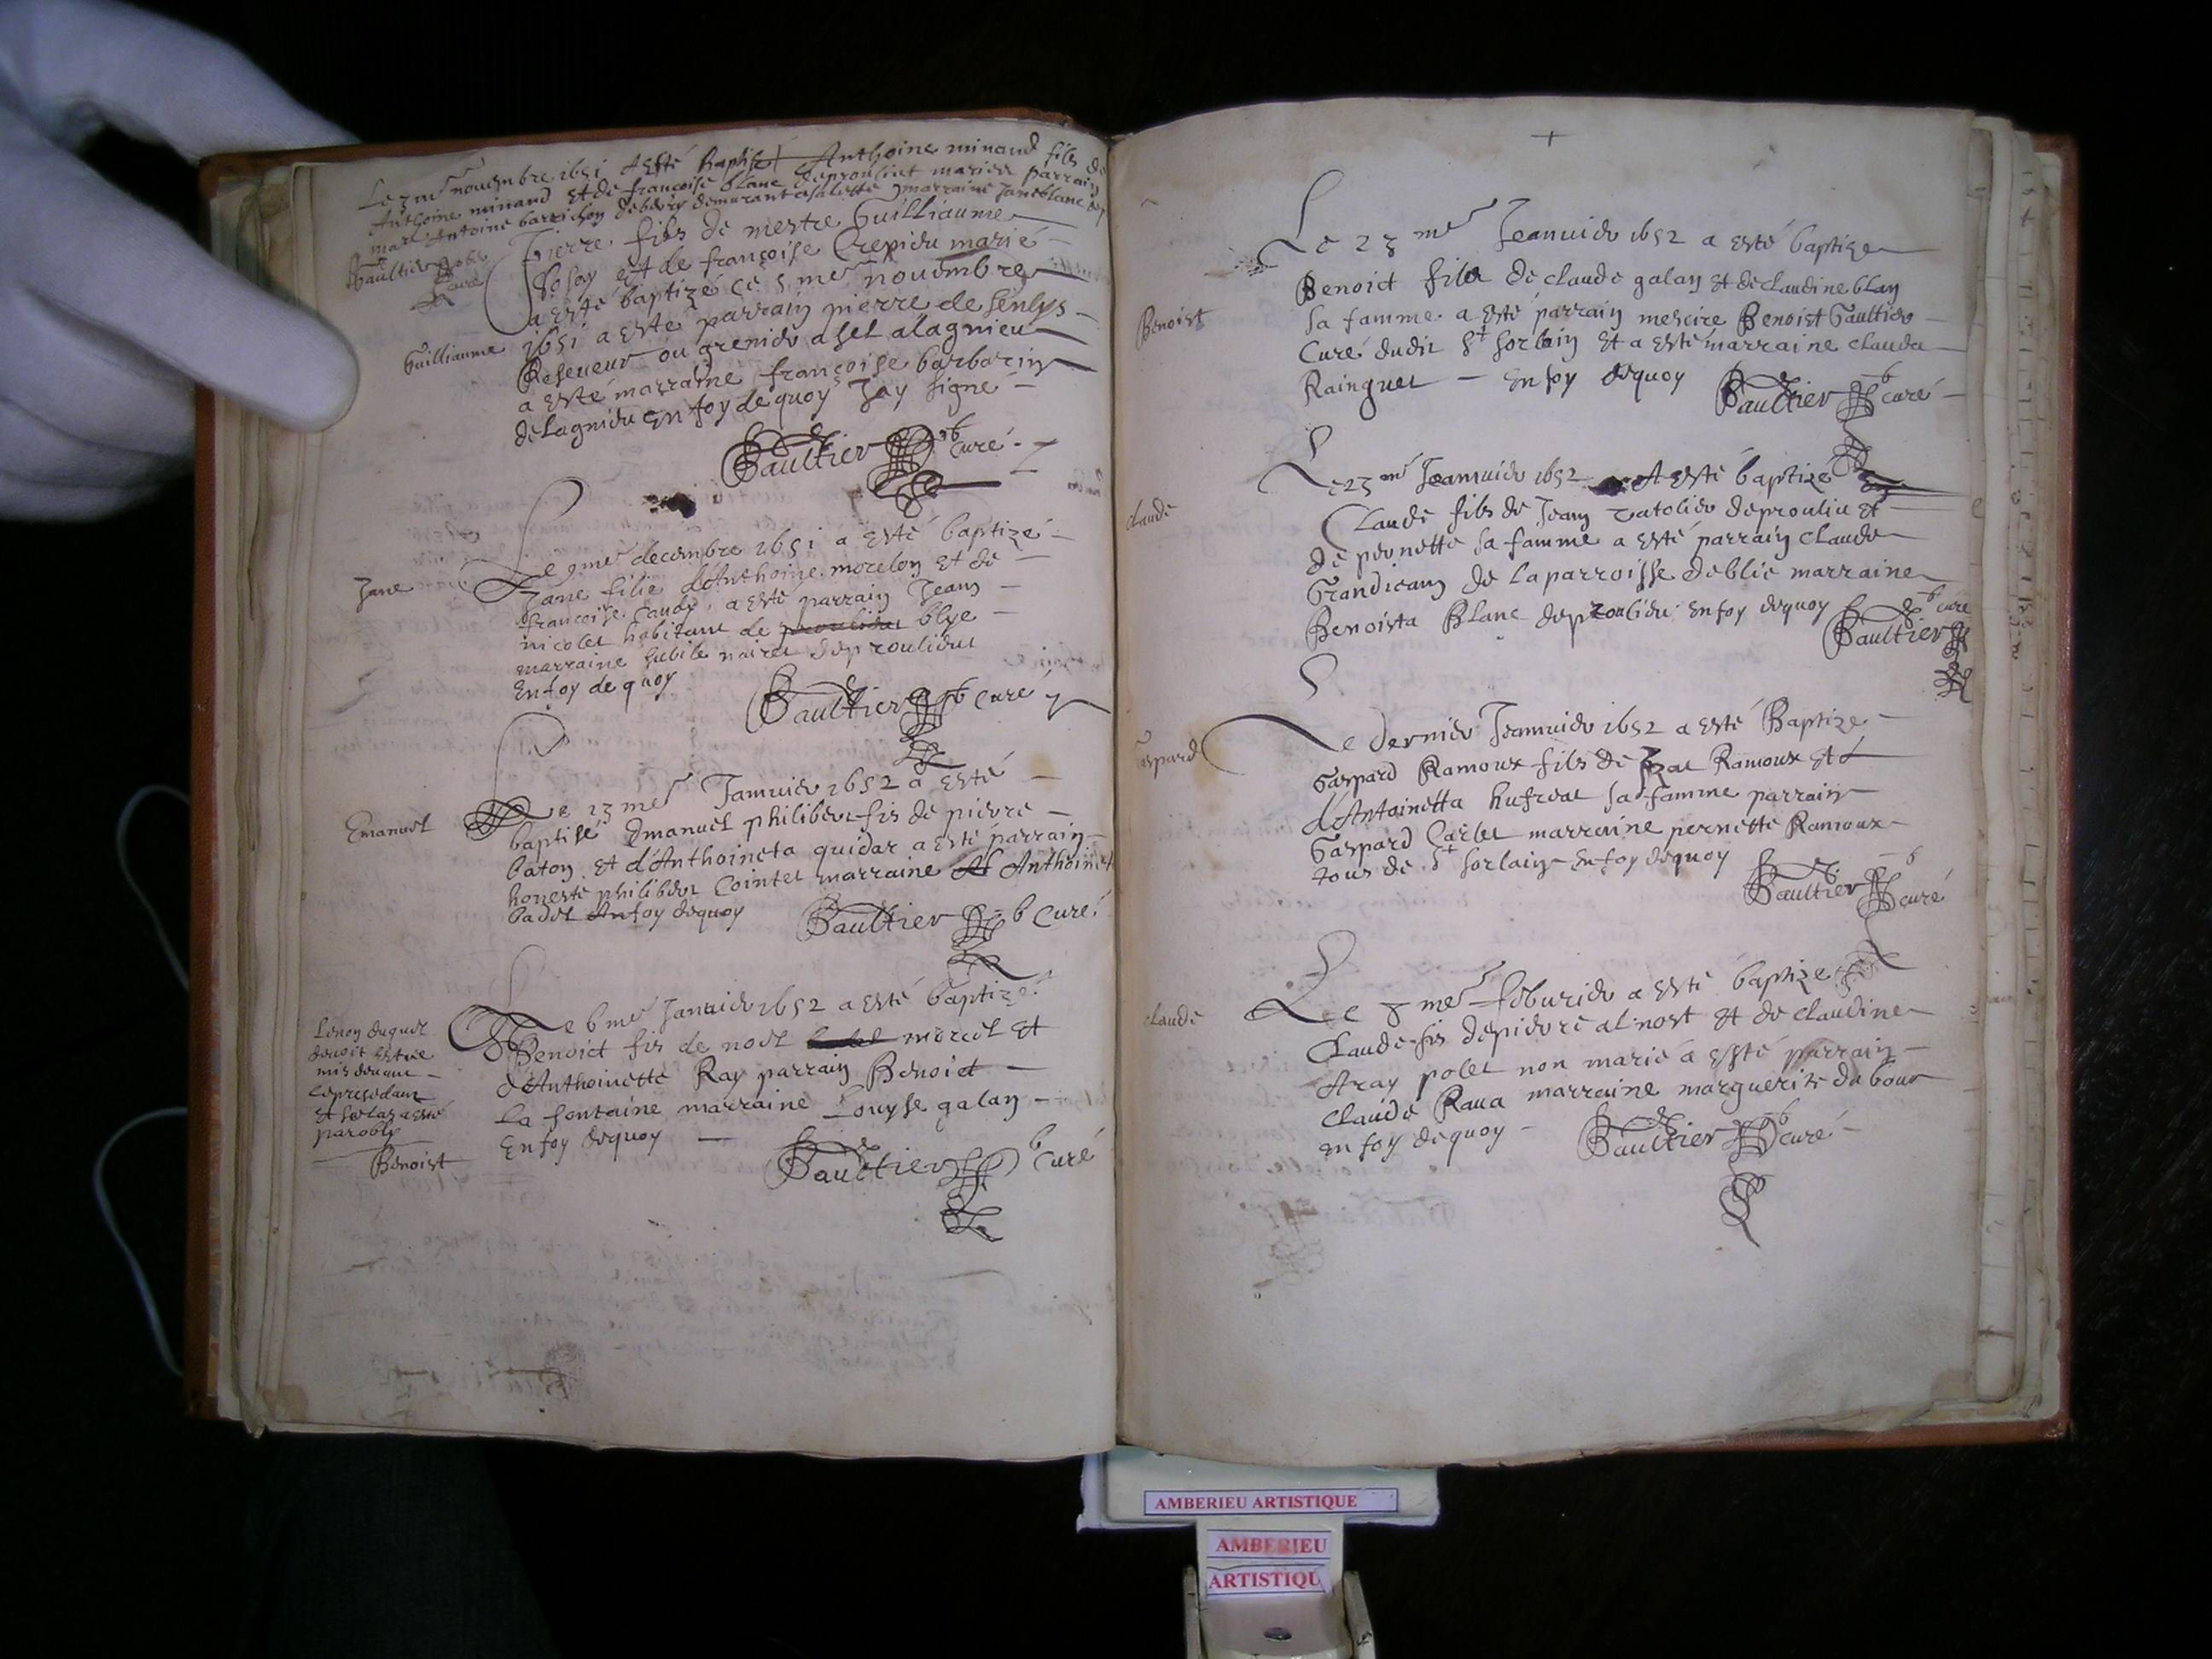 Le 3me novembre 1651 a esté Baptisé Anthoine minand fils de
Anthoine minand et de françoise blanc de proulieu mariés parrain
Antoine barrichon demurant marraine Jane blanc
Gaultier curé
Pierre fils de mestre Guilliaume
et de françoise Crepieu marié
a esté baptizé ce 5me novembre
1651 a esté parrain pierre de senlys
Guilliaume
Reseveur ou grenier a sel a lagnieu
a esté marraine françoise barbarin
de lagnieu en foy de quoy Jay signé
Gaultier curé
Le 9me decembre 1651 a esté baptizé
Jane
Jane fillie d'Anthoine morelon et de
françoise a esté parrain Jean
nicolet habitant de proulieu blye
marraine de proulieu
En foy de quoy
Gaultier curé
Le 13me Januier 1652 a esté
Emanuel
baptisé Emanuel philibert fis de pierre
baton et d'Anthoineta quidar a esté parrain
honeste philibert Cointet marraine Anthoinet
badel En foy de quoy
Gaultier curé
Le 6me Januier 1652 a esté baptizé
Benoict fis de noel morel et
d'Anthoinette Ray parrain Benoict
la fontaine marraine Louyse galan
En foy de quoy
Gaultier curé
Lenon duquel
devoit estre
mis devant
le presedant
et a esté
par obly
Benoist
Le 23me Jeanuier 1652 a esté baptize
Benoict fils de claude galan et de claudine blan
Benoist
sa famme a esté parrain mescire Benoist Gaultier
Curé dudit St sorlain et a esté marraine clauda
Rainguet En foy dequoy
Gaultier curé
Le 23me Jeanuier 1652 A esté baptizé
claude
Claude fils de Jean de proulieu et
de pernette sa famme a esté parrain Claude
Grandjean de la parroisse de blie marraine
Benoista Blanc de proulieu en foy dequoy
Gaultier curé
Le dernier Jeanuier 1652 a esté Baptize
Gaspard
Gaspard Ramoux fils de Ramoux et
d'Antoinetta sa famme parrain
Gaspard marraine pernette Ramoux
tous de St sorlain en foy dequoy
Gaultier curé
Le 8me feburier a esté baptize
claude
Claude fis de pierre et de claudine
polet non marié a esté parrain
Claude Raua marraine marguerite du bour
en foy dequoy
Gaultier curé
AMBERIEU ARTISTIQUE
AMBERIEU
ARTISTIQU